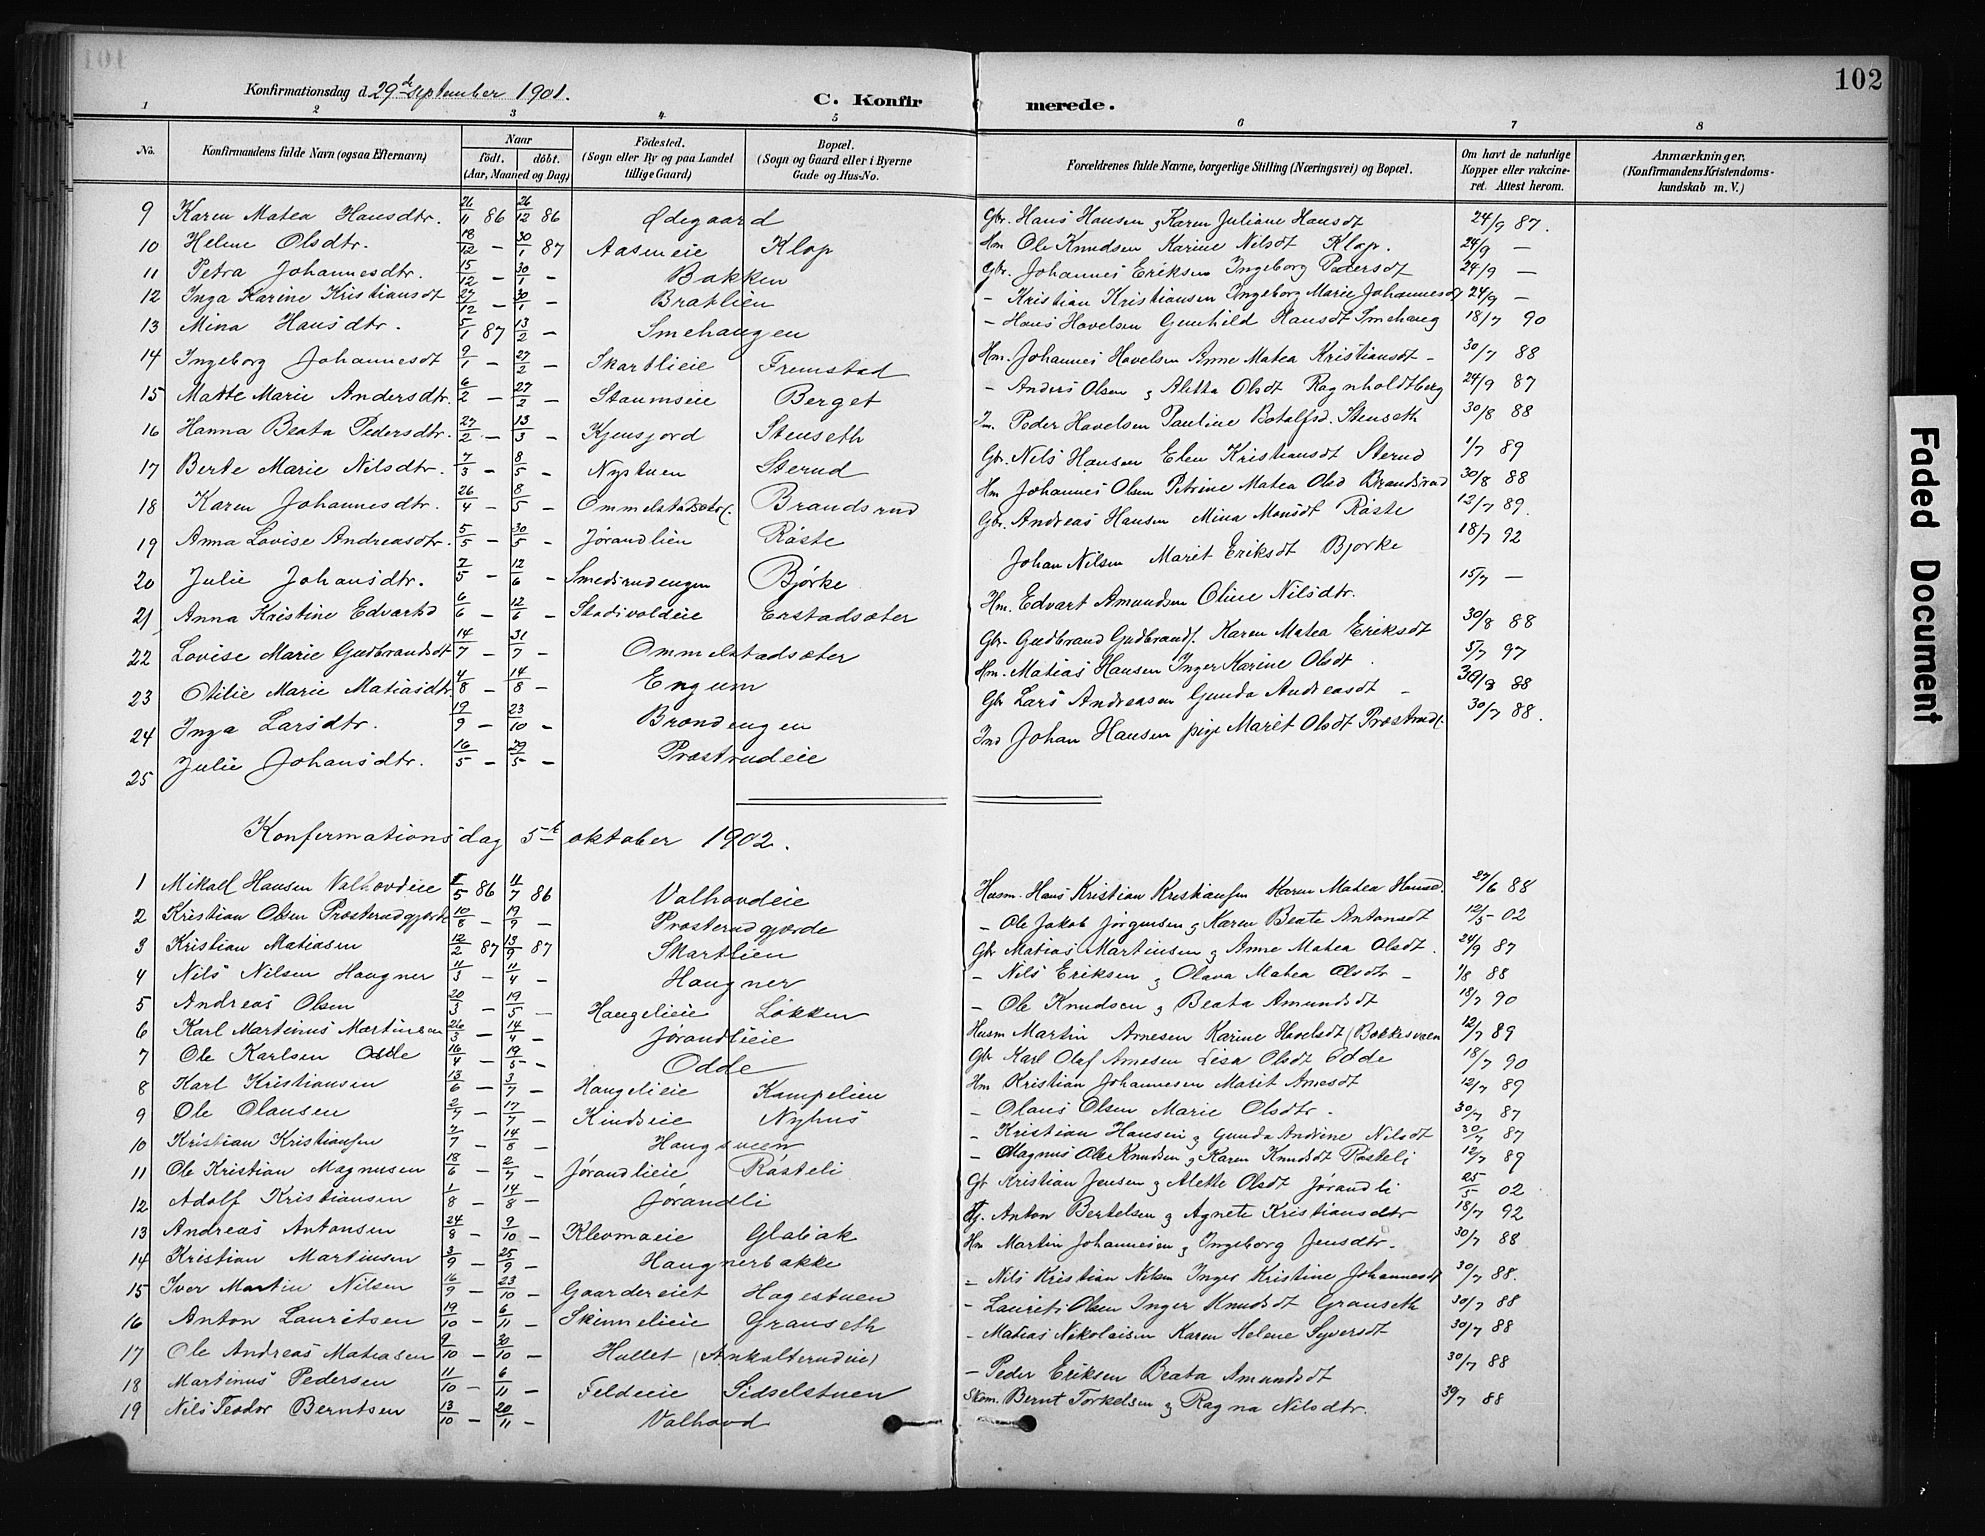 102
Konfirmationsdag d. 29de September 1901. C. Konfir merede.
1 2 3 4 5 6 7 8
No. Konfirmandens fulde Navn (ogsaa Efternavn) Naar født. døbt. (Aar, Maaned og Dag) Fødested. (Sogn eller By og paa Landet tillige Gaard) Bopæl. (Sogn og Gaard eller i Byerne Gade og Hus-No. Forældrenes fulde Navne, borgerlige Stilling (Næringsvei) og Bopæl. Om havt de naturlige Kopper eller vakcineret. Attest herom. Anmærkninger. (Konfirmandens Kristendomskundskab m. V.)
9 Karen Matea Hansdtr. 26/11 86 26/12 86 Ødegaard Gbr. Hans Hansen & Karen Juliane Hansdt 24/9 87.
10 Helene Olsdtr. 18/12 — 30/1 87 Aaseneie Klop Hm Ole Knudsen Karine Nilsdt Klop. 24/9 —
11 Petra Johannesdtr. 15/12 — 30/1 — Bakken Gbr. Johannes Eriksen Ingeborg Pedersdt 24/9 —
12 Inga Karine Kristiansdt 27/12 — 30/1 — Bratlien – Kristian Kristiansen Ingeborg Marie Johannesdt 24/9 —
13 Mina Hansdtr. 5/1 87 13/2 — Smehaugen – Hans Hovelsen Gunhild Hansdt Smehaug 18/7 90
14 Ingeborg Johannesdt 9/1 — 27/2 — Skartlieie Fremstad Hm. Johannes Hovelsen Anne Matea Kristiansdt – 30/7 88
15 Matte Marie Andersdtr. 6/2 — 27/2 — Staumseie Berget – Anders Olsen & Aletta Olsdt Ragnholdtberg 24/9 87
16 Hanna Beata Pedersdtr. 27/2 — 13/3 — Kjensjord Stenseth Im. Peder Havelsen Pauline Botolfsd. Stenseth 30/8 88
17 Berte Marie Nilsdtr. 7/3 — 8/5 — Nystuen Sterud Gbr. Nils Hansen Elen Kristiansdt Sterud 1/7 89
18 Karen Johannesdtr. 26/4 — 8/5 — Ommelstadsæter. Brandsrud Hm Johannes Olsen Petrine Matea Olsd Brandsrud 30/8 88
19 Anna Lovise Andreasdtr. 5/5 — 30/5 — Jørandlien Røste Gbr. Andreas Hansen Mina Monsdt Røste 12/7 89.
20 Julie Johansdtr. 7/5 — 12/6 — Smedsrudengen Bjørke Johan Nilsen Marit Eriksdt Bjørke 18/7 92
21 Anna Kristine Edvartsd 6/6 — 12/6 — Stadivoldeie Erstadsæter Hm. Edvart Amundsen Oline Nilsdtr. 15/7 —
22 Lovise Marie Gudbrandsdt 14/7 — 31/7 — Ommelstadsæter Gbr. Gudbrand Gudbrands. Karen Matea Eriksdt 30/8 88
23 Otilie Marie Matiasdtr 4/8 — 14/8 — Engum Hm. Matias Hansen Inger Karine Olsdt. 5/7 97
24 Inga Larsdtr. 19/9 — 23/10 — Brondengen Gbr Lars Andreasen Gunda Andreasdt – 30/8 88
25 Julie Johansdtr. 16/5 — 29/5 — Præstrudeie Ind Johan Hansen pige Marit Olsdt Præstrud. 30/7 88.
Konfermationsdag 5te oktober 1902.
1 Mikael Hansen Valhovdeie 5 86 11/7 86 Valhovdeie Husm. Hans Kristian Kristiansen Karen Matea Hansd. 27/6 88
2 Kristian Olsen Præsterudgjorde 10/8 — 19/9 — Præsterudgjorde – Ole Jakob Jørgensen & Karen Beate Antonsdt 12/5 02
3 Kristian Matiasen 12/2 87 13/9 87 Skartlien Gbr Matias Martinsen & Anne Matea Olsdt. 24/9 87
4 Nils Nilsen Haugner 11/3 — 11/4 — Haugner – Nils Eriksen & Olava Matea Olsdtr – 1/8 88
5 Andreas Olsen 20/3 — 19/5 — Haugelieie Løkken – Ole Knudsen & Beata Amundsdt 18/7 90
6 Karl Martinus Martinsen 26/3 — 14/4 — Jørandlieie Husm Martin Arnesen Karine Hovelsdt (Bakkesveen 12/7 89
7 Ole Karlsen Odde 16/4 — 19/5 — Odde Gbr Karl Olaf Arnesen Lisa Olsdt Odde 18/7 90
8 Karl Kristiansen 13/6 — 3/7 — Haugelieie Kampelien Hm Kristian Johannesen Marit Arnesdt 12/7 89
9 Ole Olausen 2/7 — 17/7 — Kindseie Nyhus – Olaus Olsen Marie Olsdtr. 30/7 87
10 Kristian Kristiansen 7/7 — 14/8 — Haugsveen – Kristian Hansen & Gunda Andrine Nilsdt 30/7 87
11 Ole Kristian Magnusen 18/6 — 2/7 — Jørandlieie Røsteli – Magnus Ole Knudsen & Karen Knudsdt Røsteli 12/7 89
12 Adolf Kristiansen 1/8 — 14/8 — Jørandli Gb Kristian Jensen & Alette Olsdt Jørandli 25/5 02
13 Andreas Antonsen 24/8 — 9/10 — Klevmoeie Glatiak Anton Bertelsen & Agnete Kristiansdtr 18/7 92
14 Kristian Martinsen 3/9 — 25/9 — Haugnerbakke Hm Martin Johannesen & Ingeborg Jensdtr. 30/7 88
15 Iver Martin Nilsen 16/9 — 23/10 — Gaardereiet Hagestuen – Nils Kristian Nilsen Inger Kristine Johannesdt 30/7 88.
16 Anton Lauritsen 19/10 — 6/11 — Skinnelieie Granseth – Laurits Olsen Inger Knudsdt Granseth 30/7 88
17 Ole Andreas Matiasen 9/10 — 30/10 — Hullet (Ankalterudeie) – Matias Nikolaisen Karen Helene Syversdt 30/7 88
18 Martinus Pedersen 11/10 — 6/11 — Feldeeie Sidselstuen – Peder Eriksen Beata Amundsdt 30/7 88
19 Nils Teodor Berntsen 13/10 — 20/11 — Valhovd Skom. Bernt Torkelsen & Ragna Nilsdtr. 30/7 88
Faded Document